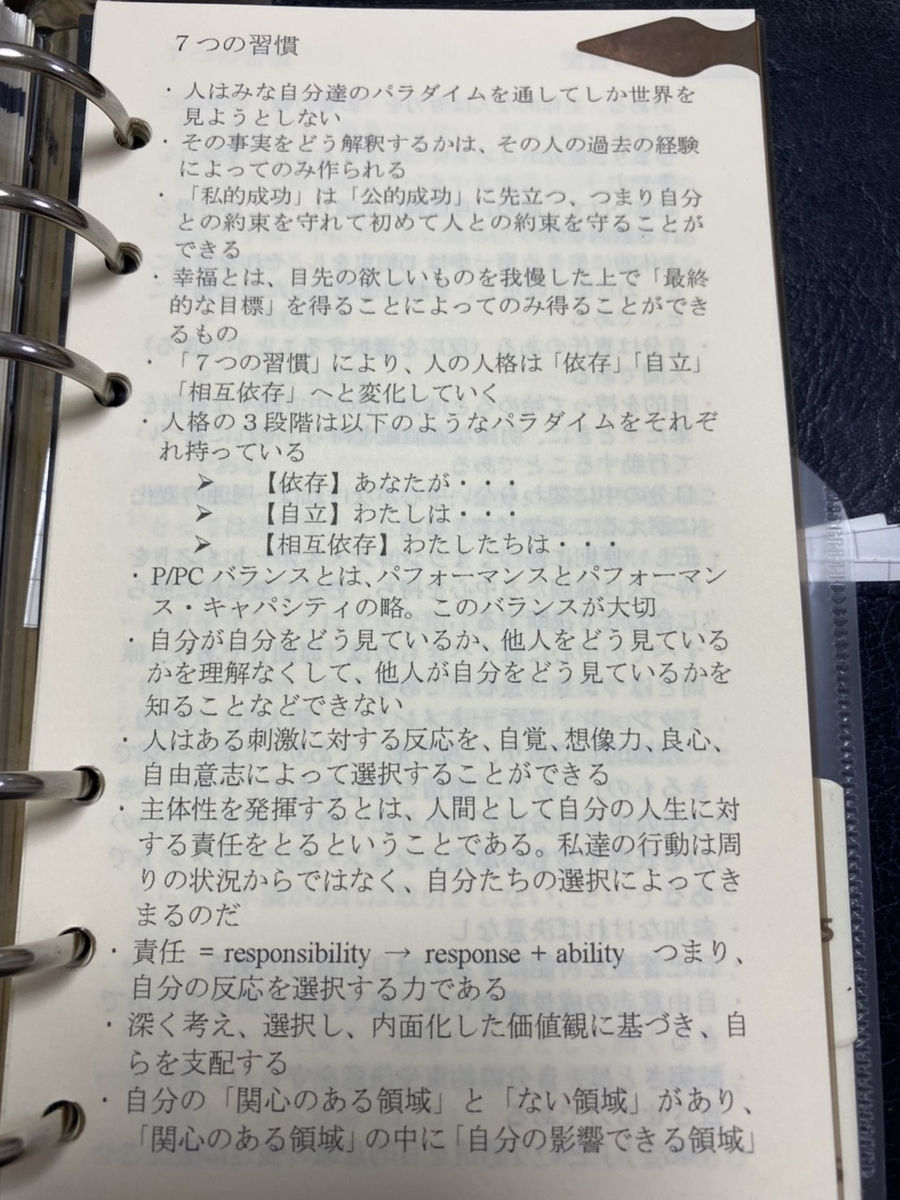 ７つの習慣
・人はみな自分達のパラダイムを通してしか世界を
見ようとしない
・その事実をどう解釈するかは、その人の過去の経験
によってのみ作られる
・「私的成功」は「公的成功」に先立つ、つまり自分
との約束を守れて初めて人との約束を守ることが
できる
・幸福とは、目先の欲しいものを我慢した上で「最終
的な目標」を得ることによってのみ得ることができ
るもの
・「７つの習慣」により、人の人格は「依存」「自立」
「相互依存」へと変化していく
・人格の３段階は以下のようなパラダイムをそれぞ
れ持っている
➢ 【依存】あなたが・・・
➢ 【自立】わたしは・・・
➢ 【相互依存】わたしたちは・・・
・P/PC バランスとは、パフォーマンスとパフォーマン
ス・キャパシティの略。このバランスが大切
・自分が自分をどう見ているか、他人をどう見ている
かを理解なくして、他人が自分をどう見ているかを
知ることなどできない
・人はある刺激に対する反応を、自覚、想像力、良心、
自由意志によって選択することができる
・主体性を発揮するとは、人間として自分の人生に対
する責任をとるということである。私達の行動は周
りの状況からではなく、自分たちの選択によってき
まるのだ
・責任 = responsibility → response + ability　つまり、
自分の反応を選択する力である
・深く考え、選択し、内面化した価値観に基づき、自
らを支配する
・自分の「関心のある領域」と「ない領域」があり、
「関心のある領域」の中に「自分の影響できる領域」